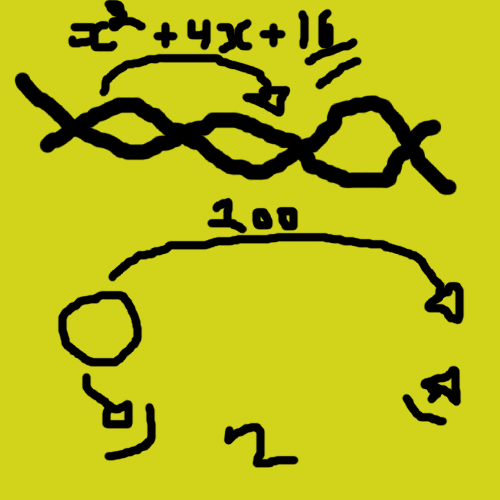 x² + 4x + 16
100
2